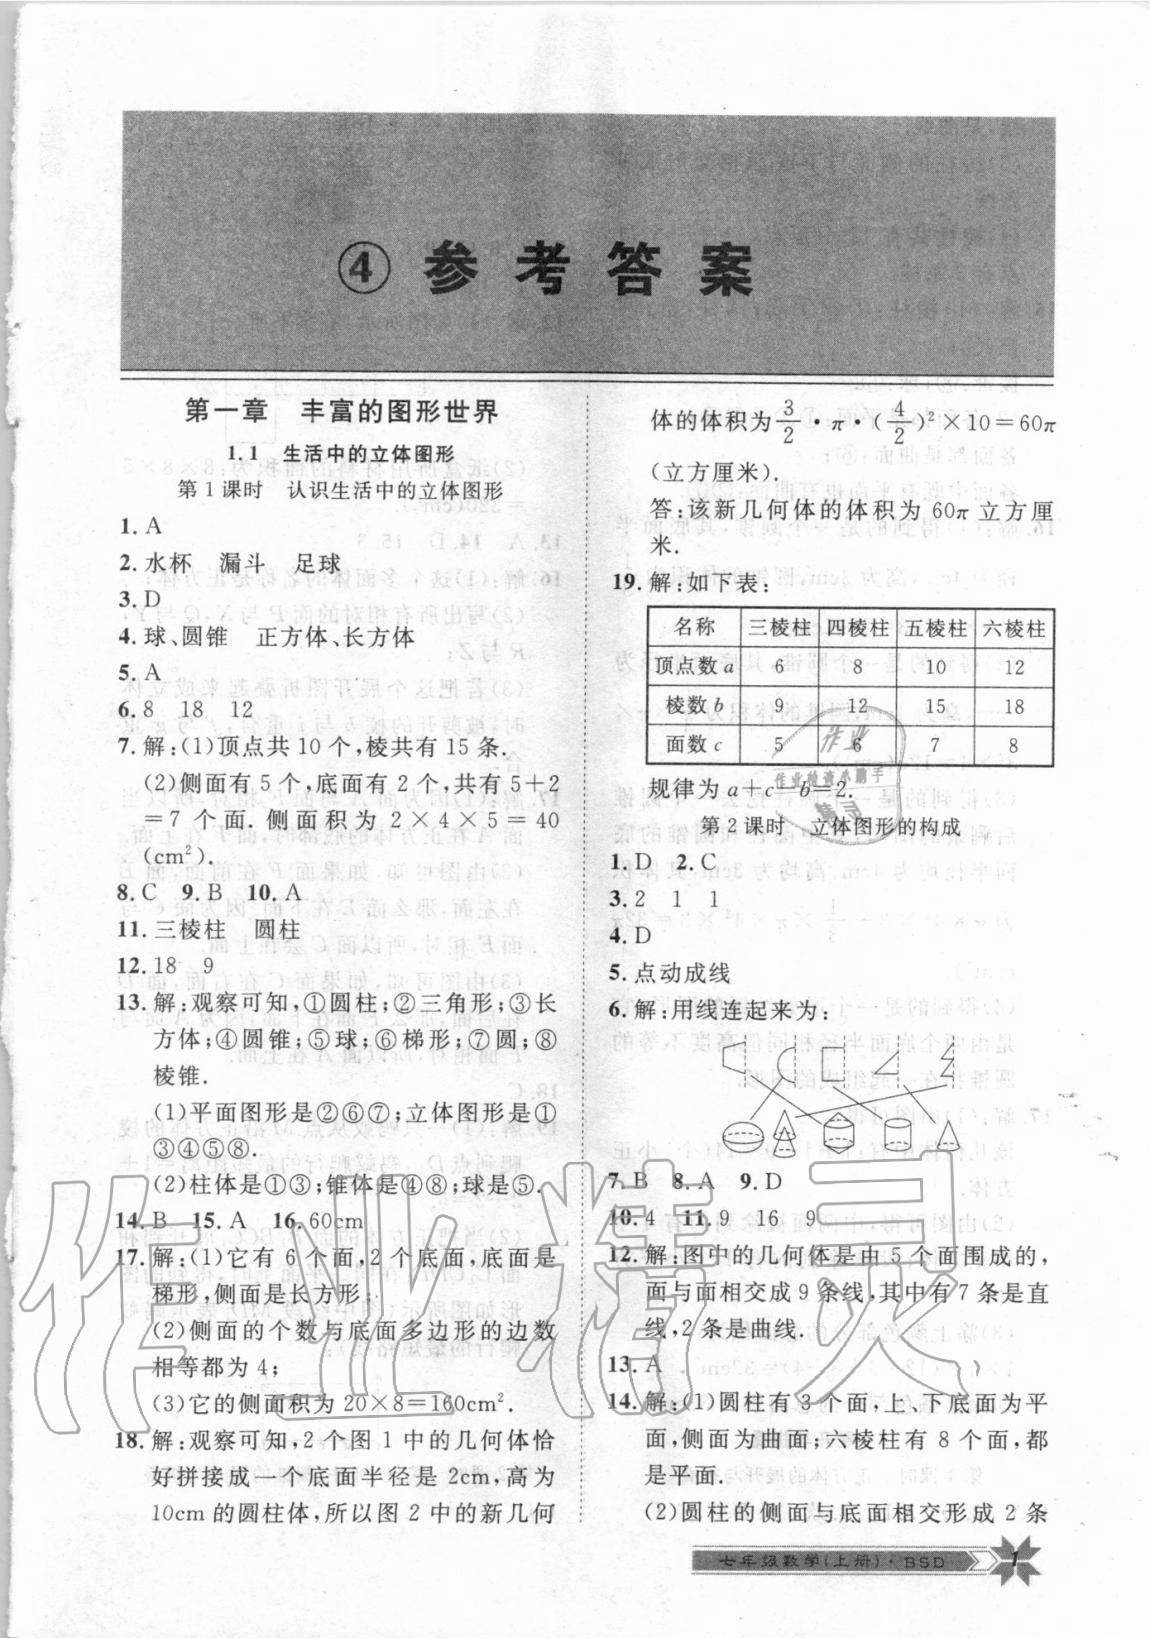 ④ 参考答案
第一章 丰富的图形世界
1.1 生活中的立体图形
第1课时 认识生活中的立体图形
1. A
2. 水杯 漏斗 足球
3. D
4. 球、圆锥 正方体、长方体
5. A
6. 8 18 12
7. 解:(1)顶点共10个,棱共有15条.
(2)侧面有5个,底面有2个,共有5+2
=7个面.侧面积为2×4×5=40
(cm²).
8. C 9. B 10. A
11. 三棱柱 圆柱
12. 18 9
13. 解:观察可知,①圆柱;②三角形;③长
方体;④圆锥;⑤球;⑥梯形;⑦圆;⑧
棱锥.
(1)平面图形是②⑥⑦;立体图形是①
③④⑤⑧.
(2)柱体是①③;锥体是④⑧;球是⑤.
14. B 15. A 16. 60cm
17. 解:(1)它有6个面,2个底面,底面是
梯形,侧面是长方形;
(2)侧面的个数与底面多边形的边数
相等都为4;
(3)它的侧面积为20×8=160cm².
18. 解:观察可知,2个图1中的几何体恰
好拼接成一个底面半径是2cm,高为
10cm的圆柱体,所以图2中的新几何
体的体积为3/2·π·(4/2)²×10=60π
(立方厘米).
答:该新几何体的体积为60π立方厘
米.
19. 解:如下表:
名称 三棱柱 四棱柱 五棱柱 六棱柱
顶点数a 6 8 10 12
棱数b 9 12 15 18
面数c 5 6 7 8
规律为a+c-b=2.
第2课时 立体图形的构成
1. D 2. C
3. 2 1 1
4. D
5. 点动成线
6. 解:用线连起来为:
7. B 8. A 9. D
10. 4 11. 9 16 9
12. 解:图中的几何体是由5个面围成的,
面与面相交成9条线,其中有7条是直
线,2条是曲线.
13. A
14. 解:(1)圆柱有3个面,上、下底面为平
面,侧面为曲面;六棱柱有8个面,都
是平面.
(2)圆柱的侧面与底面相交形成2条
七年级数学(上册)·BSD 1
作业精灵